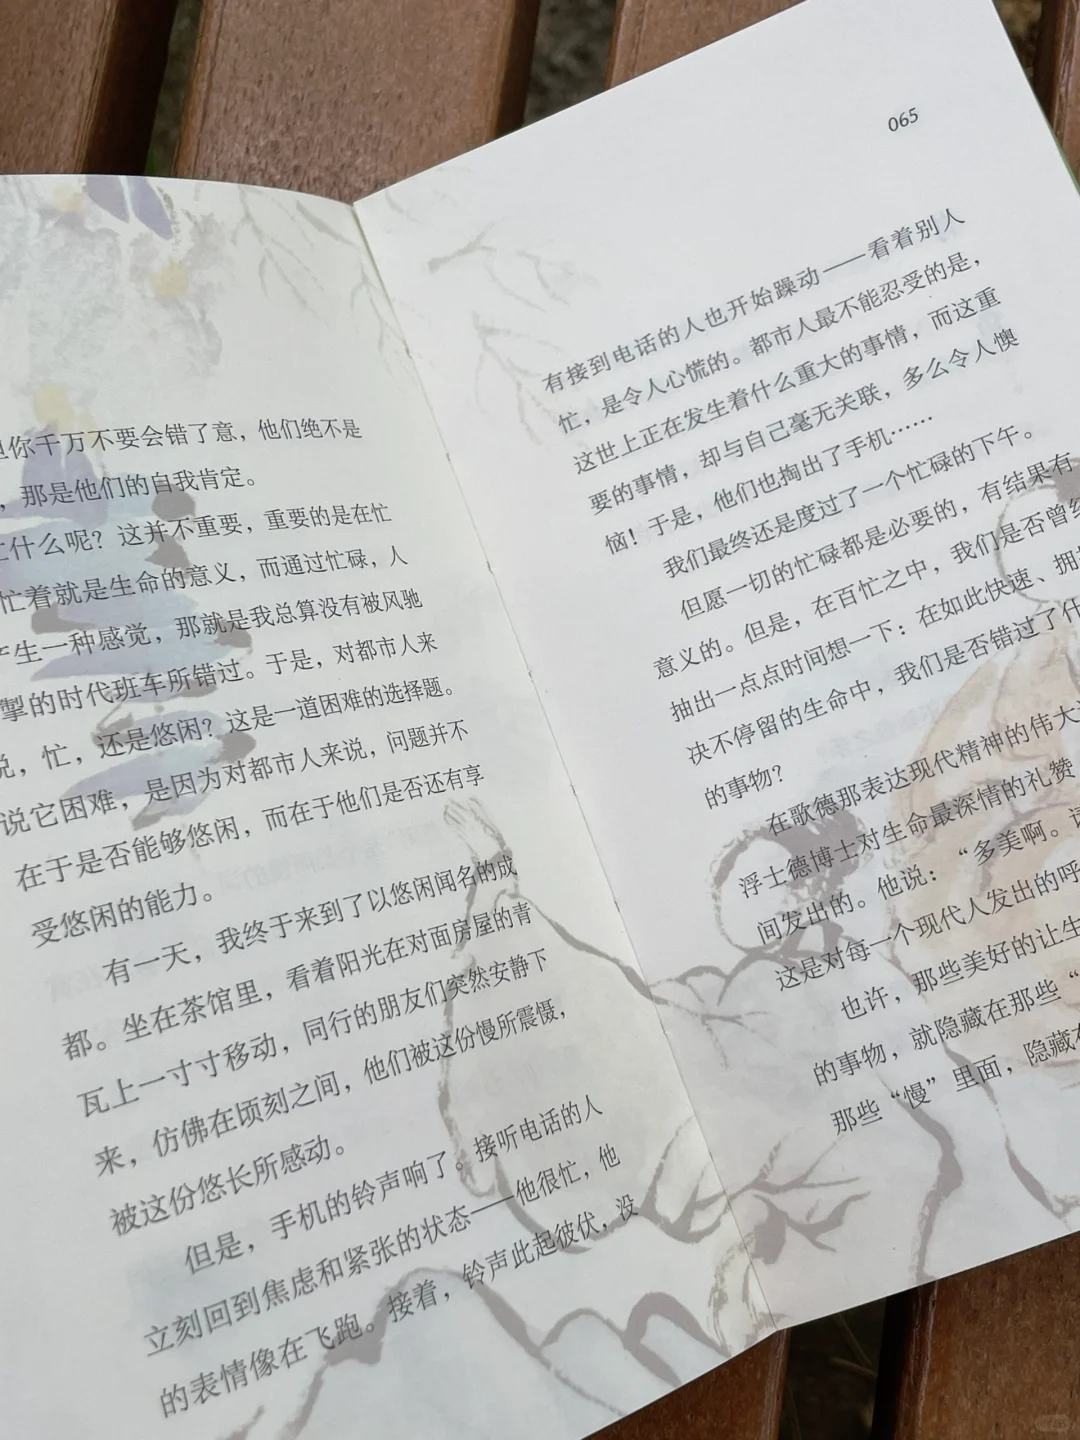 你千万不要会错了意，他们绝不是
，那是他们的自我肯定。
什么呢？这并不重要，重要的是在忙
忙着就是生命的意义，而通过忙碌，人
产生一种感觉，那就是我总算没有被风驰
掣的时代班车所错过。于是，对都市人来
说，忙，还是悠闲？这是一道困难的选择题。
说它困难，是因为对都市人来说，问题并不
在于是否能够悠闲，而在于他们是否还有享
受悠闲的能力。
有一天，我终于来到了以悠闲闻名的成
都。坐在茶馆里，看着阳光在对面房屋的青
瓦上一寸寸移动，同行的朋友们突然安静下
来，仿佛在顷刻之间，他们被这份慢所震慑，
被这份悠长所感动。
但是，手机的铃声响了。接听电话的人
立刻回到焦虑和紧张的状态——他很忙，他
的表情像在飞跑。接着，铃声此起彼伏，没
065
有接到电话的人也开始躁动——看着别人
忙，是令人心慌的。都市人最不能忍受的是，
这世上正在发生着什么重大的事情，而这重
要的事情，却与自己毫无关联，多么令人懊
恼！于是，他们也掏出了手机……
我们最终还是度过了一个忙碌的下午。
但愿一切的忙碌都是必要的，有结果有
意义的。但是，在百忙之中，我们是否曾经
抽出一点点时间想一下：在如此快速、拥
决不停留的生命中，我们是否错过了什
的事物？
在歌德那表达现代精神的伟大
浮士德博士对生命最深情的礼赞
间发出的。他说：“多美啊。
这是对每一个现代人发出的呼
也许，那些美好的让生
的事物，就隐藏在那些“
那些“慢”里面，隐藏在